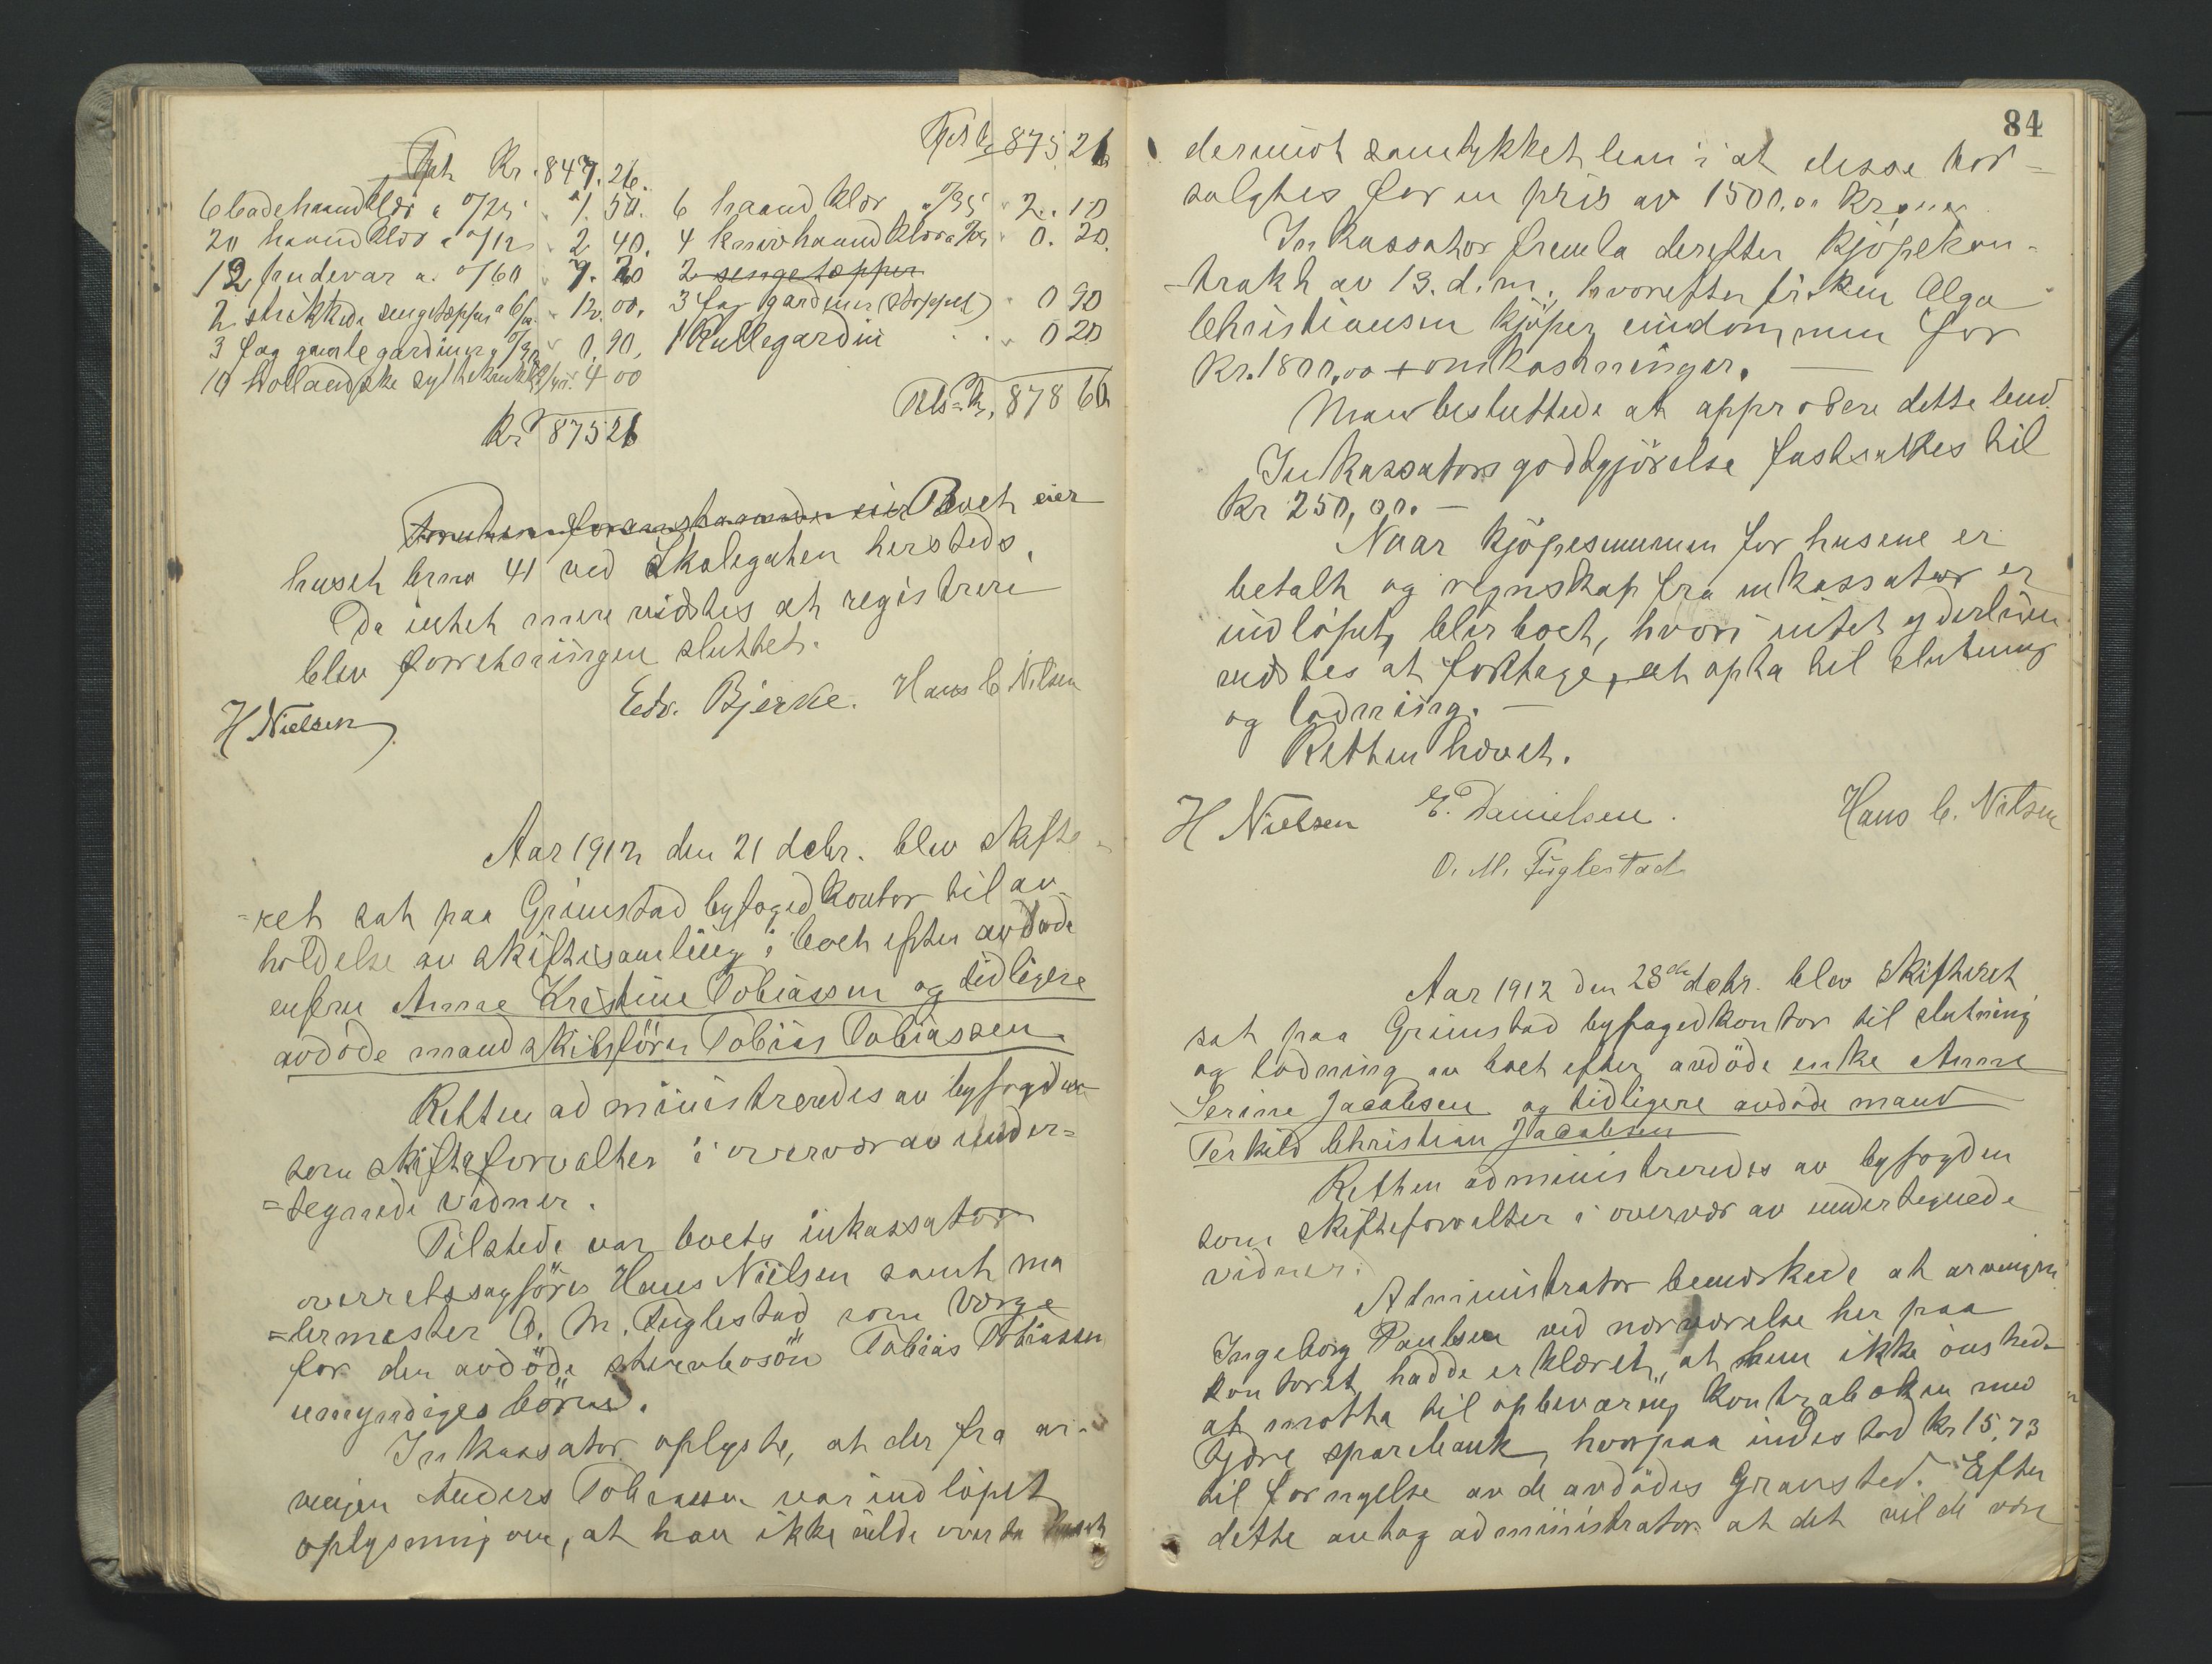 Tpt Kr. 847.26.
6 badehaandklær a 0/25 " 1.50.
20 haandklær a 0/12 " 2 40.
12 pudevar a. 0/60 " 7.20
2 strikkede sengetepper a 6/00 " 12.00.
3 fag gamle gardiner a 0/30 " 0.90,
10 hollandske syltekrukker 4 00
Kr 875 26
Tpt kr 875 26
6 haandklær a 0/35 " 2.10
4 knivhaandklær a 0/05 " 0.20.
2 sengetepper
3 fag gardiner (stoppet) " 0 90
1 Rullegardin . . " 0 20
Tils. kr. 878 66
Foruten foranstaaende eier Boet eier
huset brno 41 ved Skolegaten hersteds.
Da intet mere vidstes at registrere
blev forretningen sluttet.
H Nielsen Edv. Bjerke. Hans C. Nilsen
Aar 1912 den 21 decbr. blev skifte-
=ret sat paa Grimstad byfogedkontor til av-
holdelse av skiftesamling i boet efter avdøde
enkefru Anne Kristine Tobiassen og tidligere
avdøde mand skibsfører Tobias Tobiassen
Retten administreredes av byfogden
som skifteforvalter i overvær av under=
=tegnede vidner.
Tilstede var boets inkassator
overretssagfører Hans Nielsen samt ma
=lermester O. M. Fuglestad som verge
for den avdøde stervbosøn Tobias Tobiassen
umyndiges børn.
Inkassator oplyste, at der fra ar-
vingen Anders Tobiassen var indløpet
oplysning om, at han ikke vilde overta huset
84
derimot samtykket han i at disse bor=
solgtes for en pris av 1500,00 kroner
Inkassator fremla derefter kjøpekon-
-trakt av 13. d.m., hvorefter frøken Olga
Christiansen kjøper eiendommen for
Kr. 1800,00 + omkostninger. —
Man besluttede at approbere dette bud.
Inkassators godtgjørelse fastsattes til
Kr 250,00. —
Naar kjøpesummen for husene er
betalt og regnskap fra inkassator er
indløpet, blir boet, hvori intet yderligere
vidstes at foretage, at opta til slutning
og lodning. —
Retten hævet.
H Nielsen E. Danielsen. Hans C. Nilsen
O. M. Fuglestad
Aar 1912 den 28de decbr. blev skifteret
sat paa Grimstad byfogedkontor til slutning
og lodning av boet efter avdøde enke Anne
Serine Jacobsen og tidligere avdøde mand
Terkild Christian Jacobsen
Retten administreredes av byfogden
som skifteforvalter i overvær av undertegnede
vidner.
Administrator bemerkede at arvingen
Ingeborg Paulsen ved nærværelse her paa
kontoret hadde erklæret, at hun ikke ønskede
at motta til opbevaring kontrabøken med
Fjære sparebank, hvorpaa indestod kr 15,73
til fornyelse av de avdødes Gravsted. Efter
dette antog administrator at det vilde være